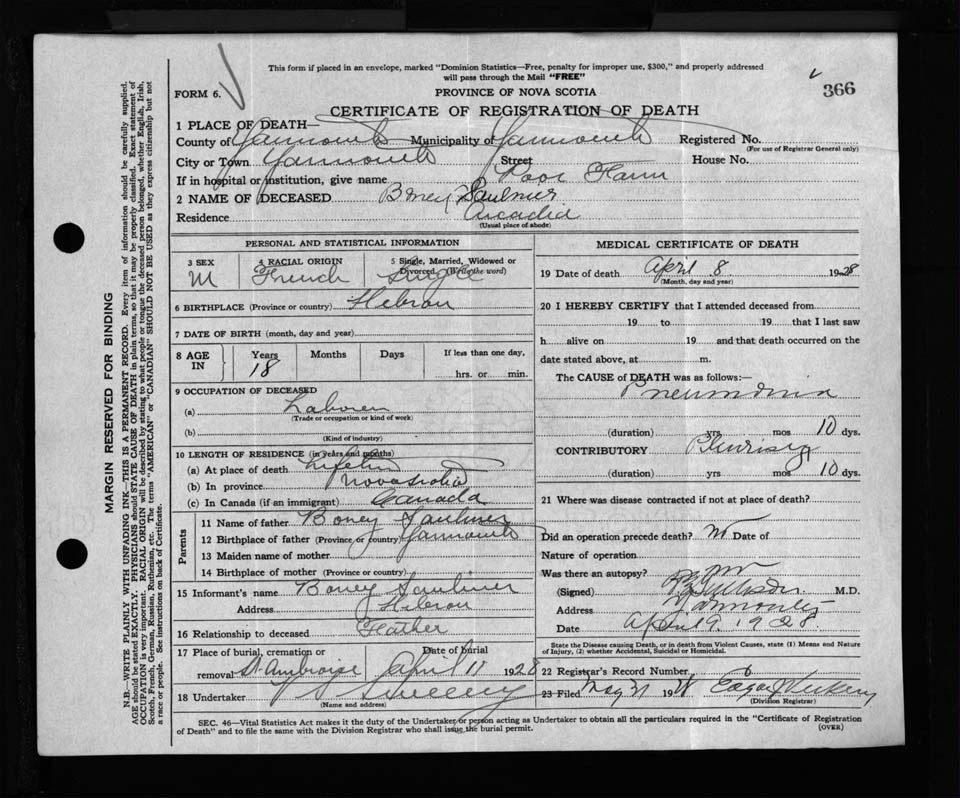 This form if placed in an envelope, marked "Dominion Statistics—Free, penalty for improper use, $300," and properly addressed
will pass through the Mail "FREE"
FORM 6.
PROVINCE OF NOVA SCOTIA
366
CERTIFICATE OF REGISTRATION OF DEATH
1 PLACE OF DEATH—
County of Yarmouth Municipality of Yarmouth Registered No.
(For use of Registrar General only)
City or Town Yarmouth Street House No.
If in hospital or institution, give name Poor Farm
2 NAME OF DECEASED Boney Saulnier
Residence Arcadia
(Usual place of abode)
PERSONAL AND STATISTICAL INFORMATION
3 SEX 4 RACIAL ORIGIN 5 Single, Married, Widowed or
Divorced (Write the word)
M French Single
6 BIRTHPLACE (Province or country) Hebron
7 DATE OF BIRTH (month, day and year)
8 AGE IN Years Months Days If less than one day,
18 hrs. or min.
9 OCCUPATION OF DECEASED
(a) Laborer
(Trade or occupation or kind of work)
(b)
(Kind of industry)
10 LENGTH OF RESIDENCE (in years and months)
(a) At place of death Lifetime
(b) In province Nova Scotia
(c) In Canada (if an immigrant) Canada
Parents
11 Name of father Boney Saulnier
12 Birthplace of father (Province or country) Yarmouth
13 Maiden name of mother
14 Birthplace of mother (Province or country)
15 Informant's name Boney Saulnier
Address Hebron
16 Relationship to deceased Father
17 Place of burial, cremation or Date of burial
removal St. Ambroise April 11 1928
18 Undertaker Sweeny
(Name and address)
MEDICAL CERTIFICATE OF DEATH
19 Date of death April 8 1928
(Month, day and year)
20 I HEREBY CERTIFY that I attended deceased from
19 to 19 that I last saw
h alive on 19 and that death occurred on the
date stated above, at m.
The CAUSE of DEATH was as follows:—
Pneumonia
(duration) yrs mos 10 dys.
CONTRIBUTORY Pleurisy
(duration) yrs mos 10 dys.
21 Where was disease contracted if not at place of death?
Did an operation precede death? no Date of
Nature of operation
Was there an autopsy? no
(Signed) M.D.
Address Yarmouth
Date April 9 1928
State the Disease causing Death, or in death from Violent Causes, state (1) Means and Nature
of Injury, (2) whether Accidental, Suicidal or Homicidal.
22 Registrar's Record Number 6
23 Filed May 31 1928 Edgar J Vickery
(Division Registrar)
SEC. 46—Vital Statistics Act makes it the duty of the Undertaker or person acting as Undertaker to obtain all the particulars required in the "Certificate of Registration
of Death" and to file the same with the Division Registrar who shall issue the burial permit.
(OVER)
MARGIN RESERVED FOR BINDING
N.B.—WRITE PLAINLY WITH UNFADING INK—THIS IS A PERMANENT RECORD. Every item of information should be carefully supplied.
AGE should be stated EXACTLY. PHYSICIANS should STATE CAUSE OF DEATH in plain terms, so that it may be properly classified. Exact statement of
OCCUPATION is very important. RACIAL ORIGIN will be described by stating to what people or tongue the deceased person belonged, whether English, Irish,
Scotch, French, German, Russian, Ruthenian, etc. The terms "AMERICAN" or "CANADIAN" SHOULD NOT BE USED as they express citizenship but not
a race or people. See instructions on back of Certificate.